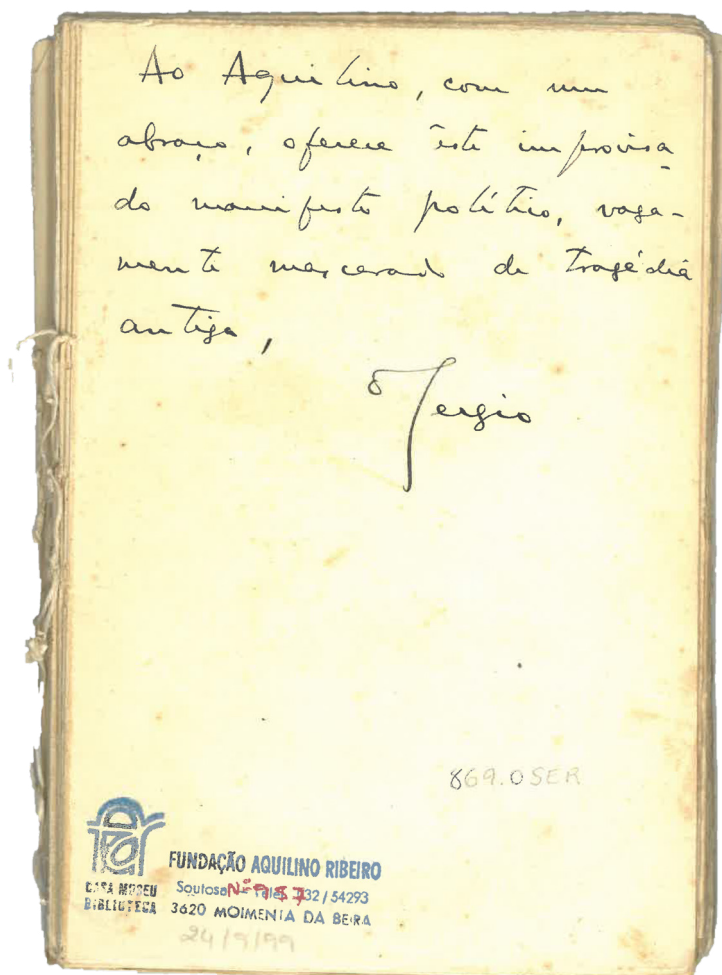 Ao Aquilino, com um
abraço, oferece êste improvisa-
do manifesto político, vaga-
mente mascarado de tragédia
antiga,
Sergio
869.0 SER
FUNDAÇÃO AQUILINO RIBEIRO
CASA MUSEU
BIBLIOTECA
Soutosa - Telef. 032/54293
Nº 957
3620 MOIMENTA DA BEIRA
24/9/99